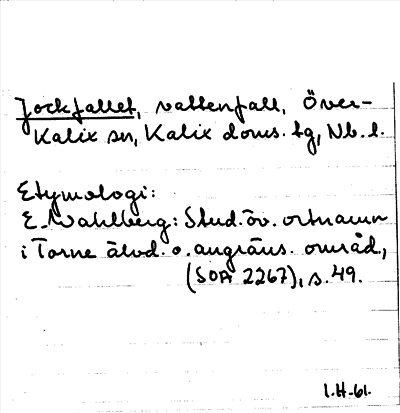 Jockfallet, vattenfall, Över-
Kalix sn, Kalix doms. tg, Nb. l.
Etymologi:
E. Wahlberg: Stud. öv. ortnamn
i Torne älvd. o. angräns. områd,
(SOA 2267), s. 49.
I.H-61.